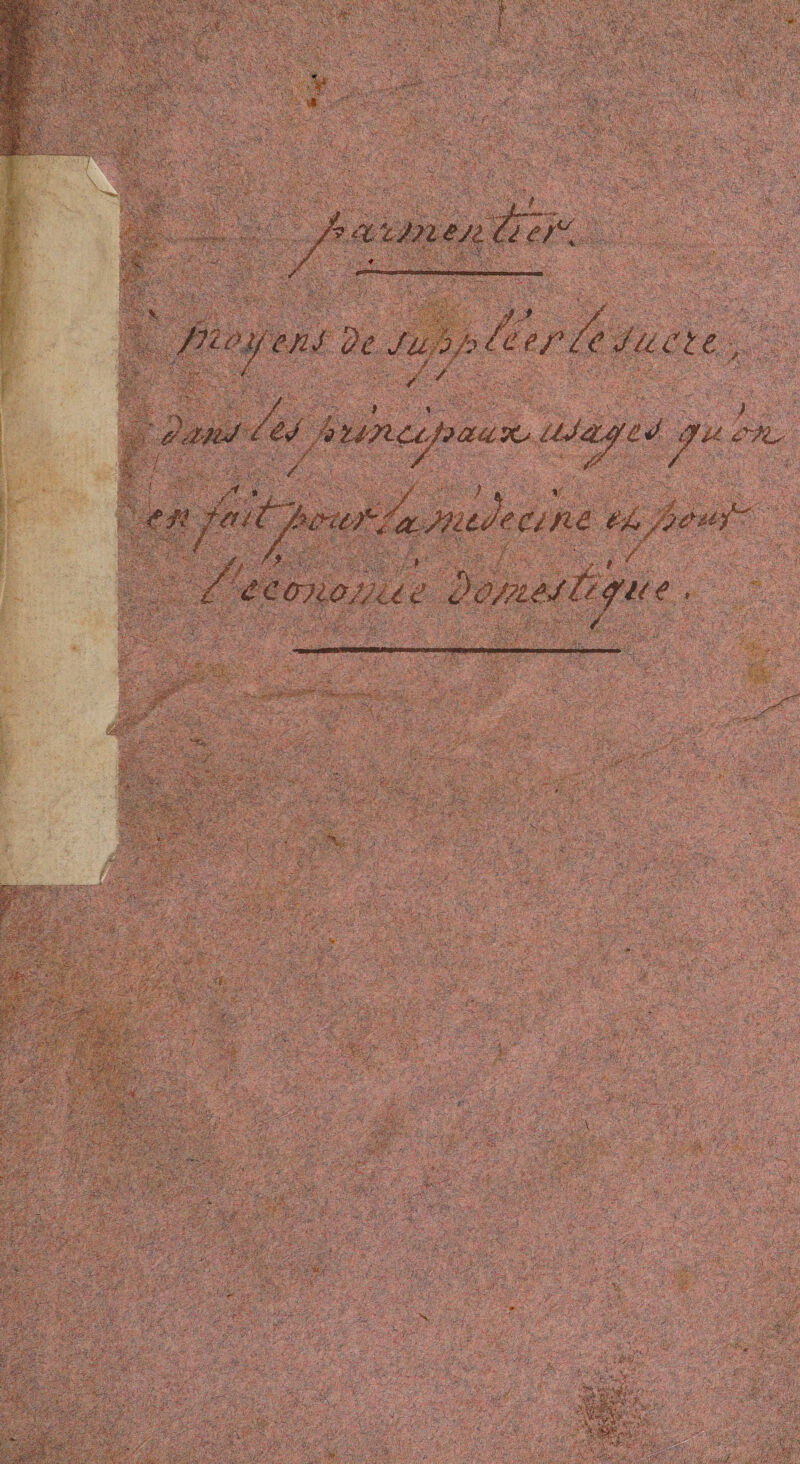 parmentier.
moyens de suppléer le sucre,
dans les principaux usages qu'on
en fait pour la médecine et pour
l'économie domestique.